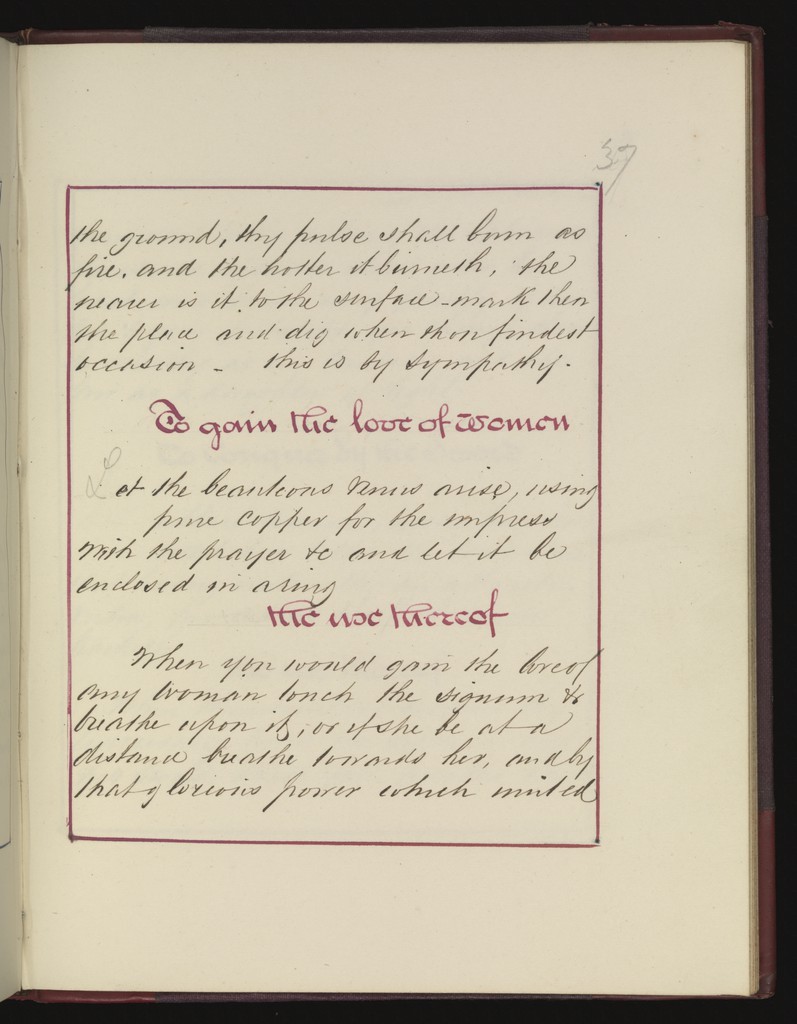 37
the ground, thy pulse shall burn as
fire, and the hotter it burneth, the
nearer is it to the surface - mark then
the place and dig when thou findest
occasion - this is by sympathy.
To gain the love of women
Let the beauteous Venus arise, using
pure copper for the impress
with the prayer &c and let it be
enclosed in a ring
the use thereof
When you would gain the love of
any woman touch the signum &
breathe upon it, or if she be at a
distance breathe towards her, and by
that glorious power which united